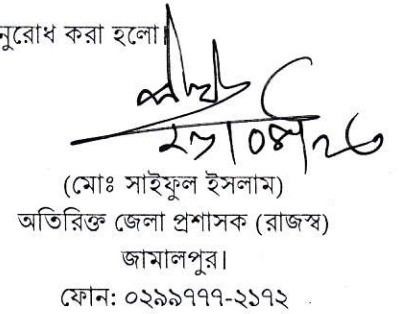 নুরোধ করা হলো।
(মোঃ সাইফুল ইসলাম)
অতিরিক্ত জেলা প্রশাসক (রাজস্ব)
জামালপুর।
ফোন: ০২৯৯৭৭৭-২১৭২